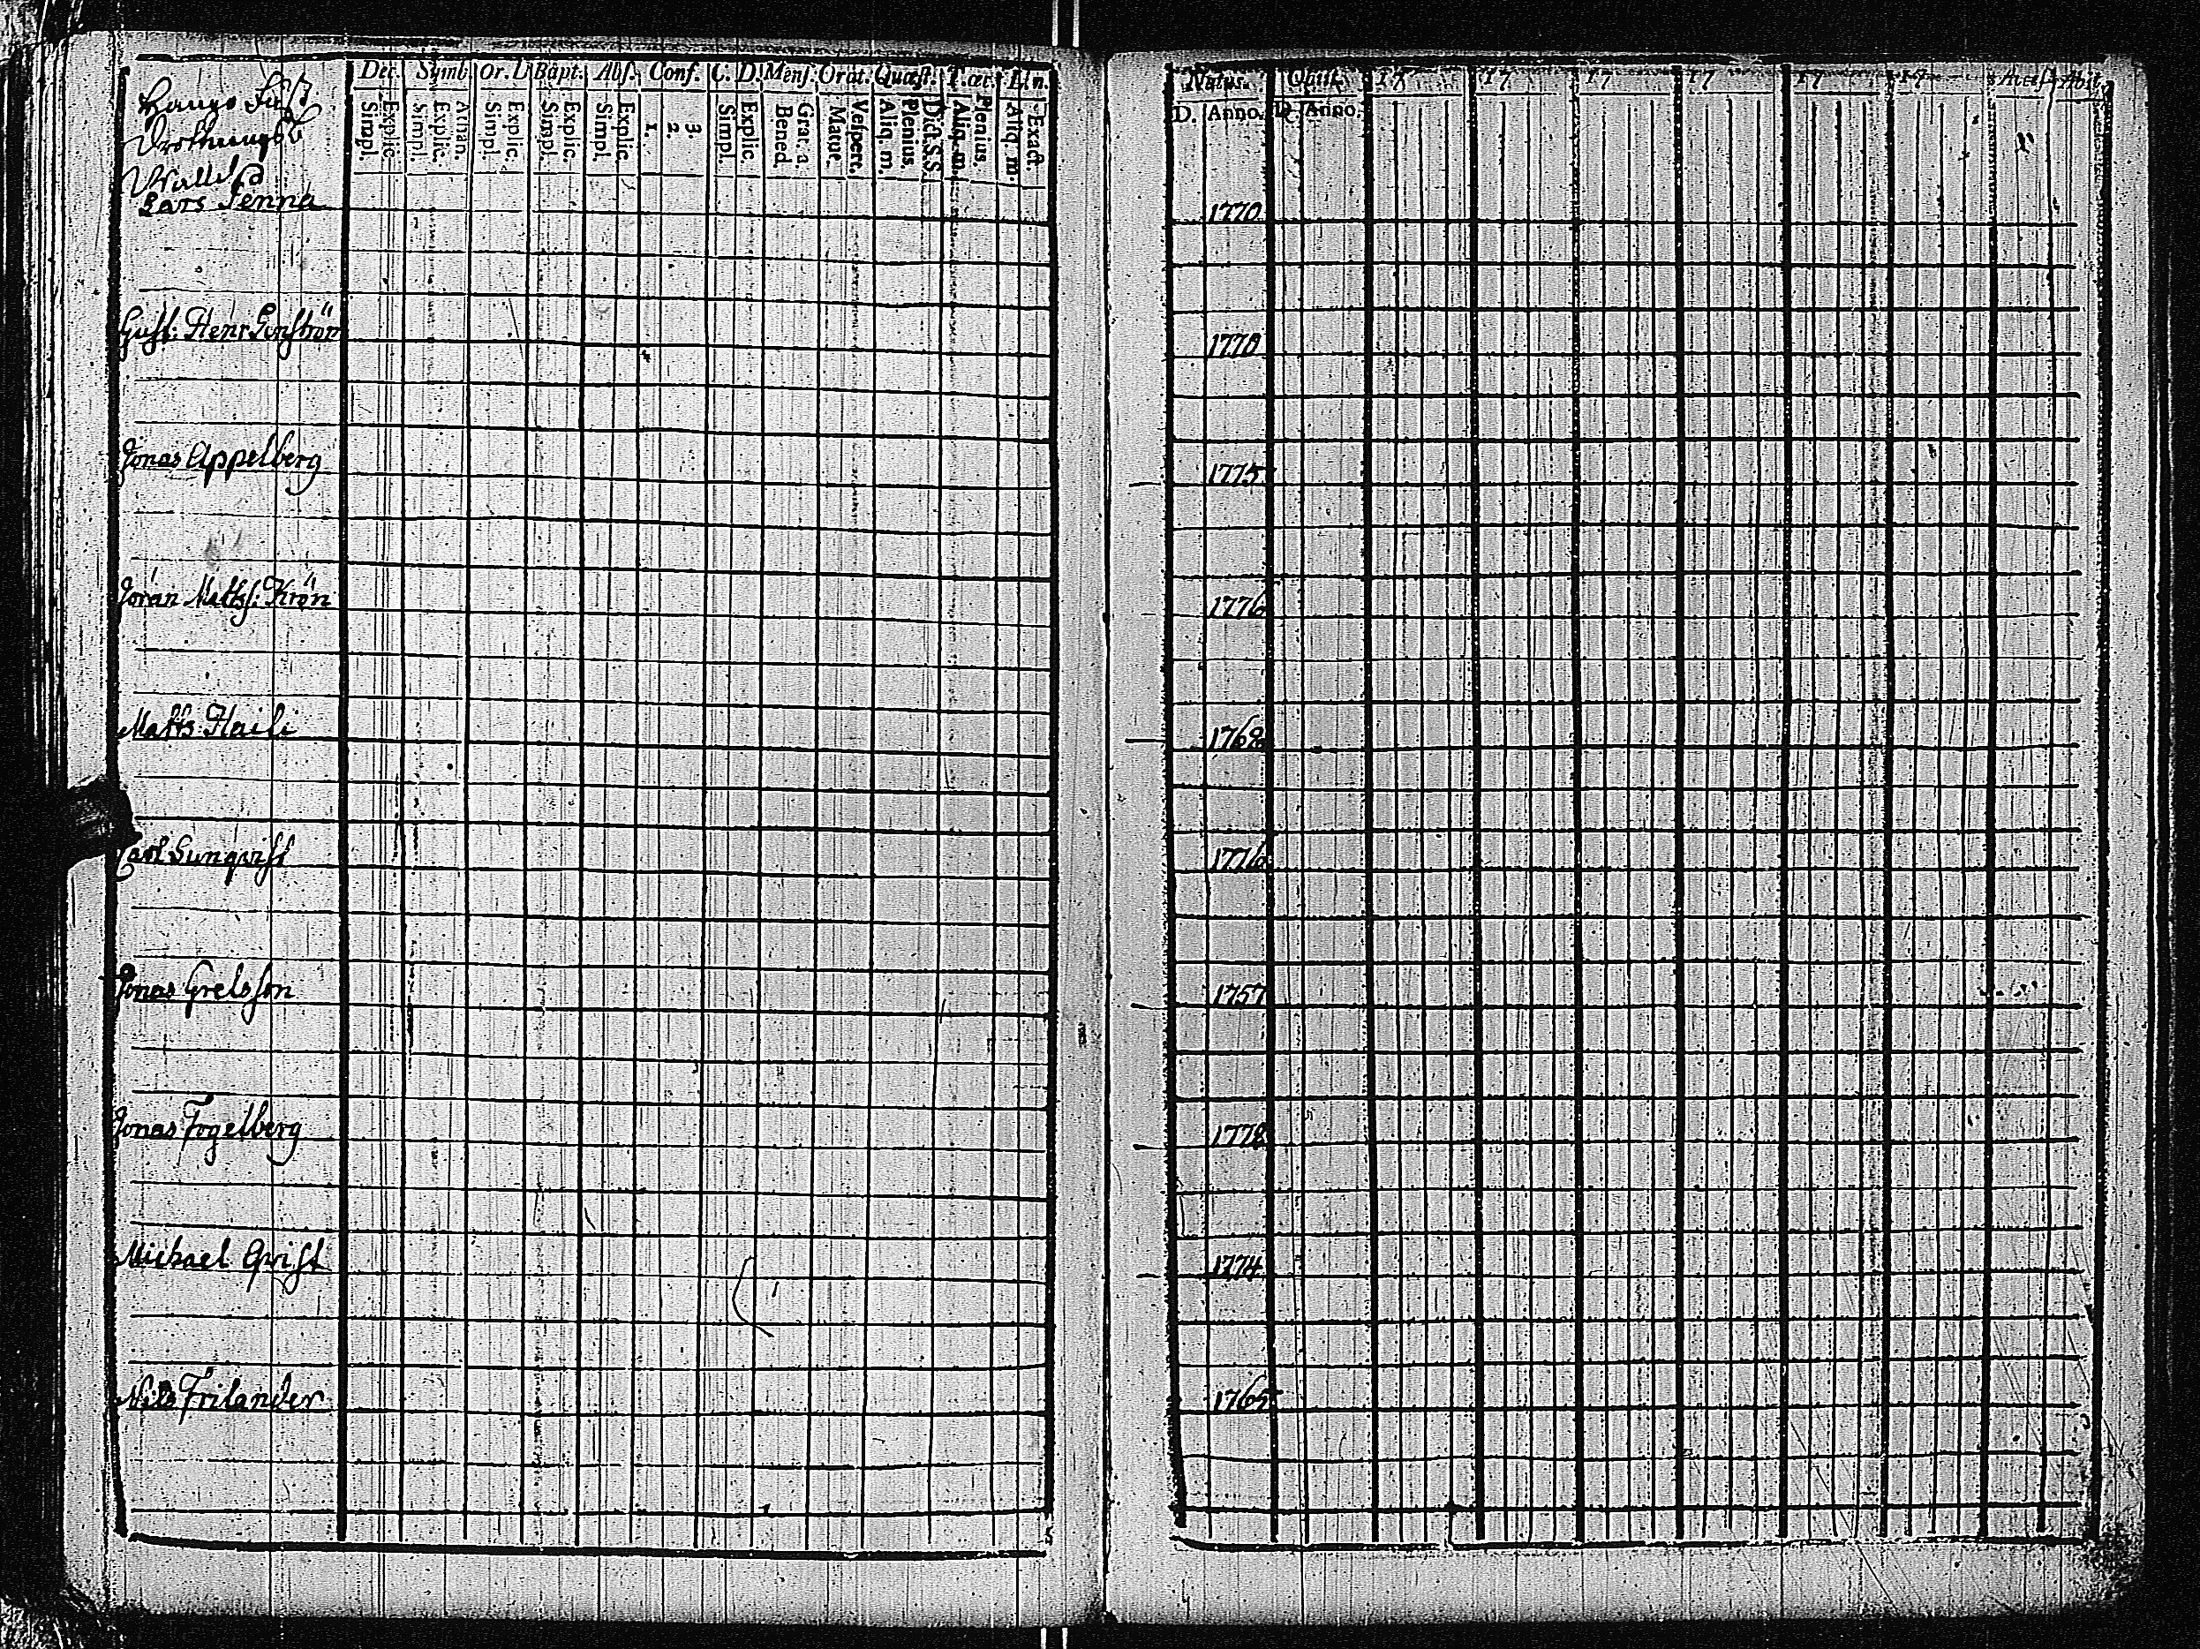 Dec. Symb. Or. D. Bapt. Abs. Conf. C. D. Mens. Orat. Quæst. T. œc. Lin.
Simpl. Explic. Simpl. Explic. Athan. Simpl. Explic. Simpl. Explic. Simpl. Explic. 1. 2. 3. Simpl. Explic. Bened. Grat. a. Matut. Vespert. Aliq. m. Plenius. Dicta S. S. Aliq. m. Plenius. Aliq. m. Exact.
Natus. Obiit. 17 17 17 17 17 17 Acces. Abit.
D. Anno. D. Anno.
Lars Penna 1770
Gust: Henr 1770
Jonas Appelberg 1775
Jöran Matts: Krön 1776
Matts Haili 1768
Carl Sunqvist 1776
Jonas Grelsson 1757
Jonas Fogelberg 1778
Michael Qvist 1774
Nils Frilander 1765